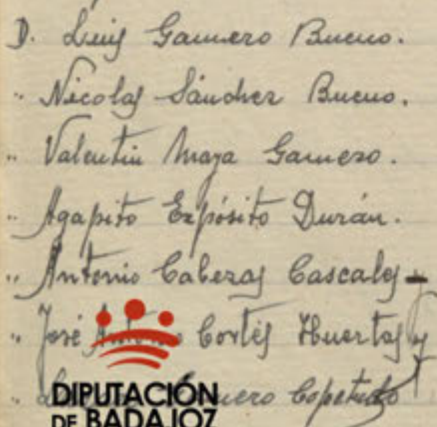 D. Luis Gamero Bueno.
" Nicolas Sánchez Bueno.
" Valentin Maya Gamero.
" Agapito Expósito Durán.
" Antonio Caberas Cascales -
" José Antonio Cortés Huertas y
" Copetudo
DIPUTACIÓN
DE BADAJOZ